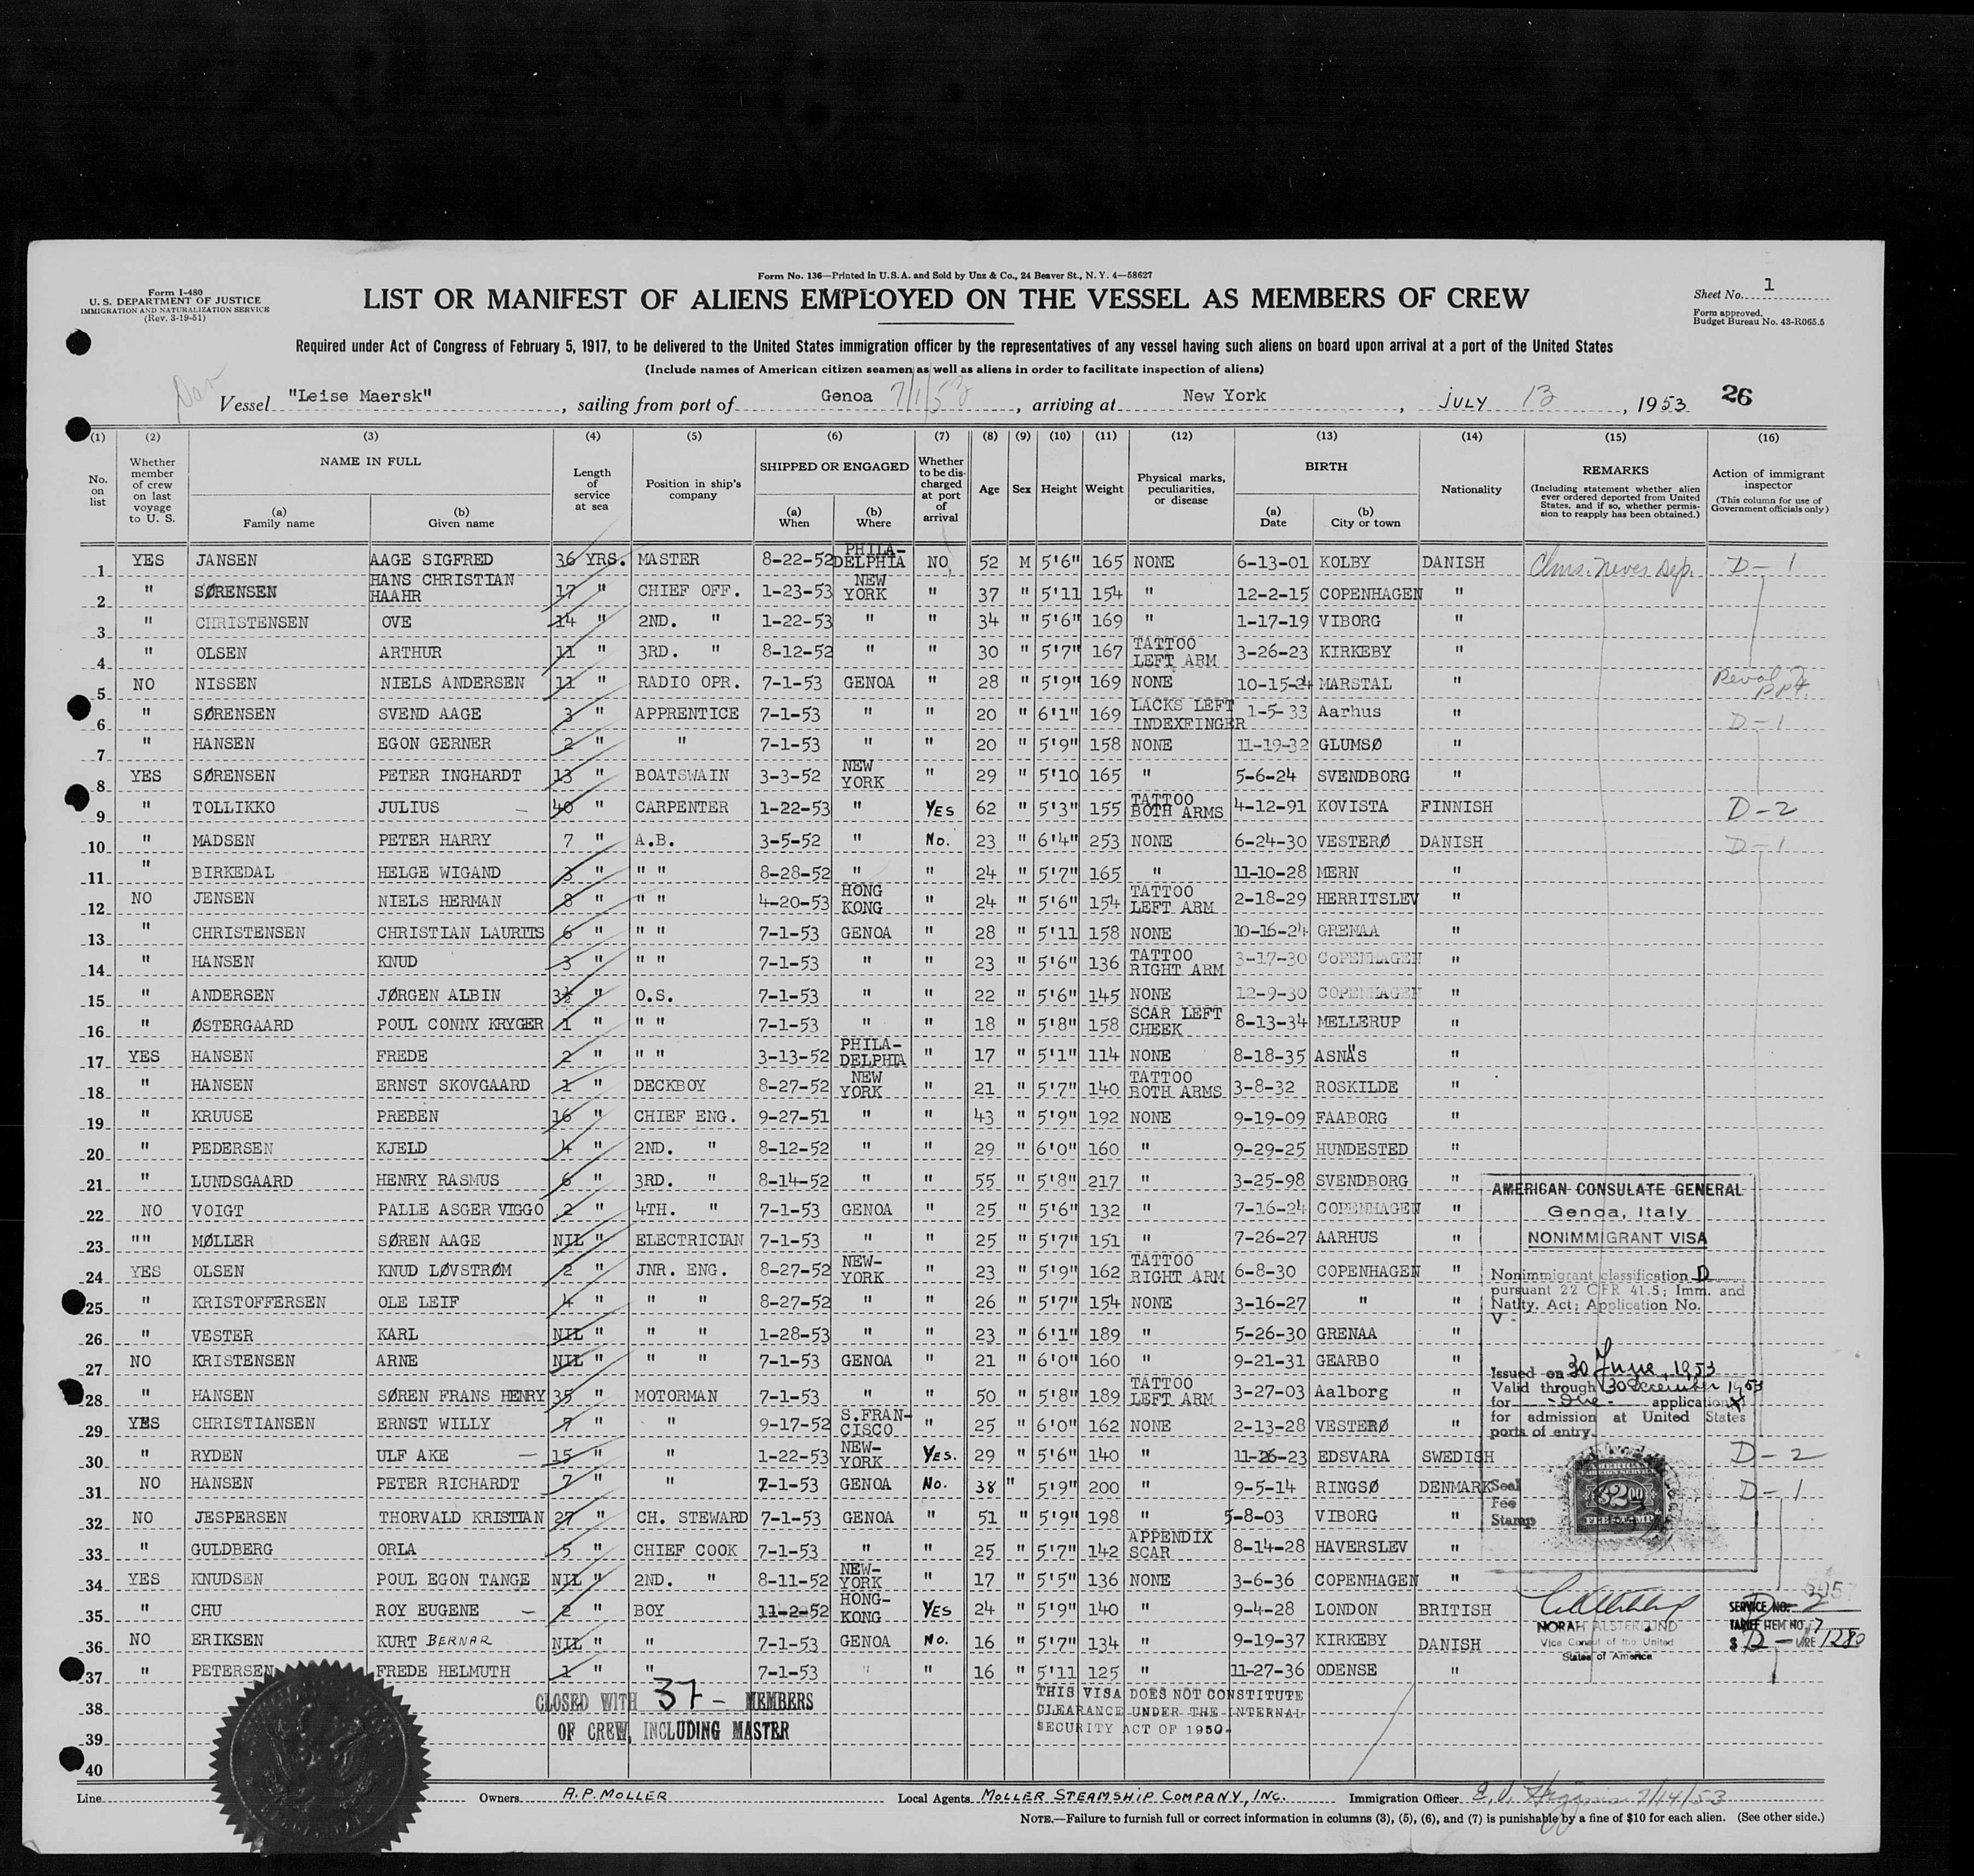 Form No. 136—Printed in U.S.A. and Sold by Unz & Co., 24 Beaver St., N.Y. 4—58627
Form I-480
U. S. DEPARTMENT OF JUSTICE
IMMIGRATION AND NATURALIZATION SERVICE
(Rev. 3-19-51)
LIST OR MANIFEST OF ALIENS EMPLOYED ON THE VESSEL AS MEMBERS OF CREW
Sheet No. 1
Form approved.
Budget Bureau No. 43-R065.5
Required under Act of Congress of February 5, 1917, to be delivered to the United States immigration officer by the representatives of any vessel having such aliens on board upon arrival at a port of the United States
(Include names of American citizen seamen as well as aliens in order to facilitate inspection of aliens)
Vessel "Leise Maersk", sailing from port of Genoa 7/1/53, arriving at New York, JULY 13, 1953 26
(1) (2) (3) (4) (5) (6) (7) (8) (9) (10) (11) (12) (13) (14) (15) (16)
No. on list
Whether member of crew on last voyage to U. S.
NAME IN FULL
(a) Family name
(b) Given name
Length of service at sea
Position in ship's company
SHIPPED OR ENGAGED
(a) When
(b) Where
Whether to be discharged at port of arrival
Age
Sex
Height
Weight
Physical marks, peculiarities, or disease
BIRTH
(a) Date
(b) City or town
Nationality
REMARKS
(Including statement whether alien ever ordered deported from United States, and if so, whether permission to reapply has been obtained.)
Action of immigrant inspector
(This column for use of Government officials only)
1 YES JANSEN AAGE SIGFRED 36 YRS. MASTER 8-22-52 PHILA-DELPHIA NO 52 M 5'6" 165 NONE 6-13-01 KOLBY DANISH Clms. never dep. D-1
2 " SØRENSEN HANS CHRISTIAN HAAHR 17 " CHIEF OFF. 1-23-53 NEW YORK " 37 " 5'11 154 " 12-2-15 COPENHAGEN "
3 " CHRISTENSEN OVE 14 " 2ND. " 1-22-53 " " 34 " 5'6" 169 " 1-17-19 VIBORG "
4 " OLSEN ARTHUR 11 " 3RD. " 8-12-52 " " 30 " 5'7" 167 TATTOO LEFT ARM 3-26-23 KIRKEBY "
5 NO NISSEN NIELS ANDERSEN 11 " RADIO OPR. 7-1-53 GENOA " 28 " 5'9" 169 NONE 10-15-24 MARSTAL "
6 " SØRENSEN SVEND AAGE 3 " APPRENTICE 7-1-53 " " 20 " 6'1" 169 LACKS LEFT INDEXFINGER 1-5-33 Aarhus " D-1
7 " HANSEN EGON GERNER 2 " " 7-1-53 " " 20 " 5'9" 158 NONE 11-19-32 GLUMSØ "
8 YES SØRENSEN PETER INGHARDT 13 " BOATSWAIN 3-3-52 NEW YORK " 29 " 5'10 165 " 5-6-24 SVENDBORG "
9 " TOLLIKKO JULIUS — 40 " CARPENTER 1-22-53 " YES 62 " 5'3" 155 TATTOO BOTH ARMS 4-12-91 KOVISTA FINNISH D-2
10 " MADSEN PETER HARRY 7 " A.B. 3-5-52 " No. 23 " 6'4" 253 NONE 6-24-30 VESTERØ DANISH D-1
11 " BIRKEDAL HELGE WIGAND 3 " " " 8-28-52 " " 24 " 5'7" 165 " 11-10-28 MERN "
12 NO JENSEN NIELS HERMAN 8 " " " 4-20-53 HONG KONG " 24 " 5'6" 154 TATTOO LEFT ARM 2-18-29 HERRITSLEV "
13 " CHRISTENSEN CHRISTIAN LAURITS 6 " " " 7-1-53 GENOA " 28 " 5'11 158 NONE 10-16-24 GRENAA "
14 " HANSEN KNUD 3 " " " 7-1-53 " " 23 " 5'6" 136 TATTOO RIGHT ARM 3-17-30 COPENHAGEN "
15 " ANDERSEN JØRGEN ALBIN 3½ " O.S. 7-1-53 " " 22 " 5'6" 145 NONE 12-9-30 COPENHAGEN "
16 " ØSTERGAARD POUL CONNY KRYGER 1 " " " 7-1-53 " " 18 " 5'8" 158 SCAR LEFT CHEEK 8-13-34 MELLERUP "
17 YES HANSEN FREDE 2 " " " 3-13-52 PHILA-DELPHIA " 17 " 5'1" 114 NONE 8-18-35 ASNÄS "
18 " HANSEN ERNST SKOVGAARD 1 " DECKBOY 8-27-52 NEW YORK " 21 " 5'7" 140 TATTOO BOTH ARMS 3-8-32 ROSKILDE "
19 " KRUUSE PREBEN 16 " CHIEF ENG. 9-27-51 " " 43 " 5'9" 192 NONE 9-19-09 FAABORG "
20 " PEDERSEN KJELD 4 " 2ND. " 8-12-52 " " 29 " 6'0" 160 " 9-29-25 HUNDESTED "
21 " LUNDSGAARD HENRY RASMUS 6 " 3RD. " 8-14-52 " " 55 " 5'8" 217 " 3-25-98 SVENDBORG "
22 NO VOIGT PALLE ASGER VIGGO 2 " 4TH. " 7-1-53 GENOA " 25 " 5'6" 132 " 7-16-24 COPENHAGEN "
23 "" MØLLER SØREN AAGE NIL " ELECTRICIAN 7-1-53 " " 25 " 5'7" 151 " 7-26-27 AARHUS "
24 YES OLSEN KNUD LØVSTRØM 2 " JNR. ENG. 8-27-52 NEW-YORK " 23 " 5'9" 162 TATTOO RIGHT ARM 6-8-30 COPENHAGEN "
25 " KRISTOFFERSEN OLE LEIF 4 " " " 8-27-52 " " 26 " 5'7" 154 NONE 3-16-27 " "
26 " VESTER KARL NIL " " " 1-28-53 " " 23 " 6'1" 189 " 5-26-30 GRENAA "
27 NO KRISTENSEN ARNE NIL " " " 7-1-53 GENOA " 21 " 6'0" 160 " 9-21-31 GEARBO "
28 " HANSEN SØREN FRANS HENRY 35 " MOTORMAN 7-1-53 " " 50 " 5'8" 189 TATTOO LEFT ARM 3-27-03 Aalborg "
29 YES CHRISTIANSEN ERNST WILLY 7 " " 9-17-52 S.FRAN-CISCO " 25 " 6'0" 162 NONE 2-13-28 VESTERØ "
30 " RYDEN ULF AKE — 15 " " 1-22-53 NEW-YORK Yes. 29 " 5'6" 140 " 11-26-23 EDSVARA SWEDISH D-2
31 NO HANSEN PETER RICHARDT 7 " " 7-1-53 GENOA No. 38 " 5'9" 200 " 9-5-14 RINGSØ DENMARK D-1
32 NO JESPERSEN THORVALD KRISTIAN 27 " CH. STEWARD 7-1-53 GENOA " 51 " 5'9" 198 " 5-8-03 VIBORG "
33 " GULDBERG ORLA 5 " CHIEF COOK 7-1-53 " " 25 " 5'7" 142 APPENDIX SCAR 8-14-28 HAVERSLEV "
34 YES KNUDSEN POUL EGON TANGE NIL " 2ND. " 8-11-52 NEW-YORK " 17 " 5'5" 136 NONE 3-6-36 COPENHAGEN "
35 " CHU ROY EUGENE — 2 " BOY 11-2-52 HONG-KONG YES 24 " 5'9" 140 " 9-4-28 LONDON BRITISH D-2
36 NO ERIKSEN KURT BERNAR NIL " " 7-1-53 GENOA No. 16 " 5'7" 134 " 9-19-37 KIRKEBY DANISH
37 " PETERSEN FREDE HELMUTH 1 " " 7-1-53 " " 16 " 5'11 125 " 11-27-36 ODENSE "
38
39
40
AMERICAN CONSULATE GENERAL
Genoa, Italy
NONIMMIGRANT VISA
Nonimmigrant classification D
pursuant 22 CFR 41.5; Imm. and
Natlty. Act; Application No.
V -
Issued on 30 June, 1953
Valid through 30 December 1953
for - One - application
for admission at United States
ports of entry.
Seal
Fee
Stamp
AMERICAN
FOREIGN SERVICE
$2.00
FEE STAMP
NORAH ALSTERLUND
Vice Consul of the United
States of America
SERVICE NO.
TARIFF ITEM NO. 7
$ LIRE 1280
CLOSED WITH 37 - MEMBERS
OF CREW, INCLUDING MASTER
THIS VISA DOES NOT CONSTITUTE
CLEARANCE UNDER THE INTERNAL
SECURITY ACT OF 1950.
Line Owners A.P. MOLLER Local Agents MOLLER STEAMSHIP COMPANY, INC. Immigration Officer E. V. Higgins 7/14/53
NOTE.—Failure to furnish full or correct information in columns (3), (5), (6), and (7) is punishable by a fine of $10 for each alien. (See other side.)